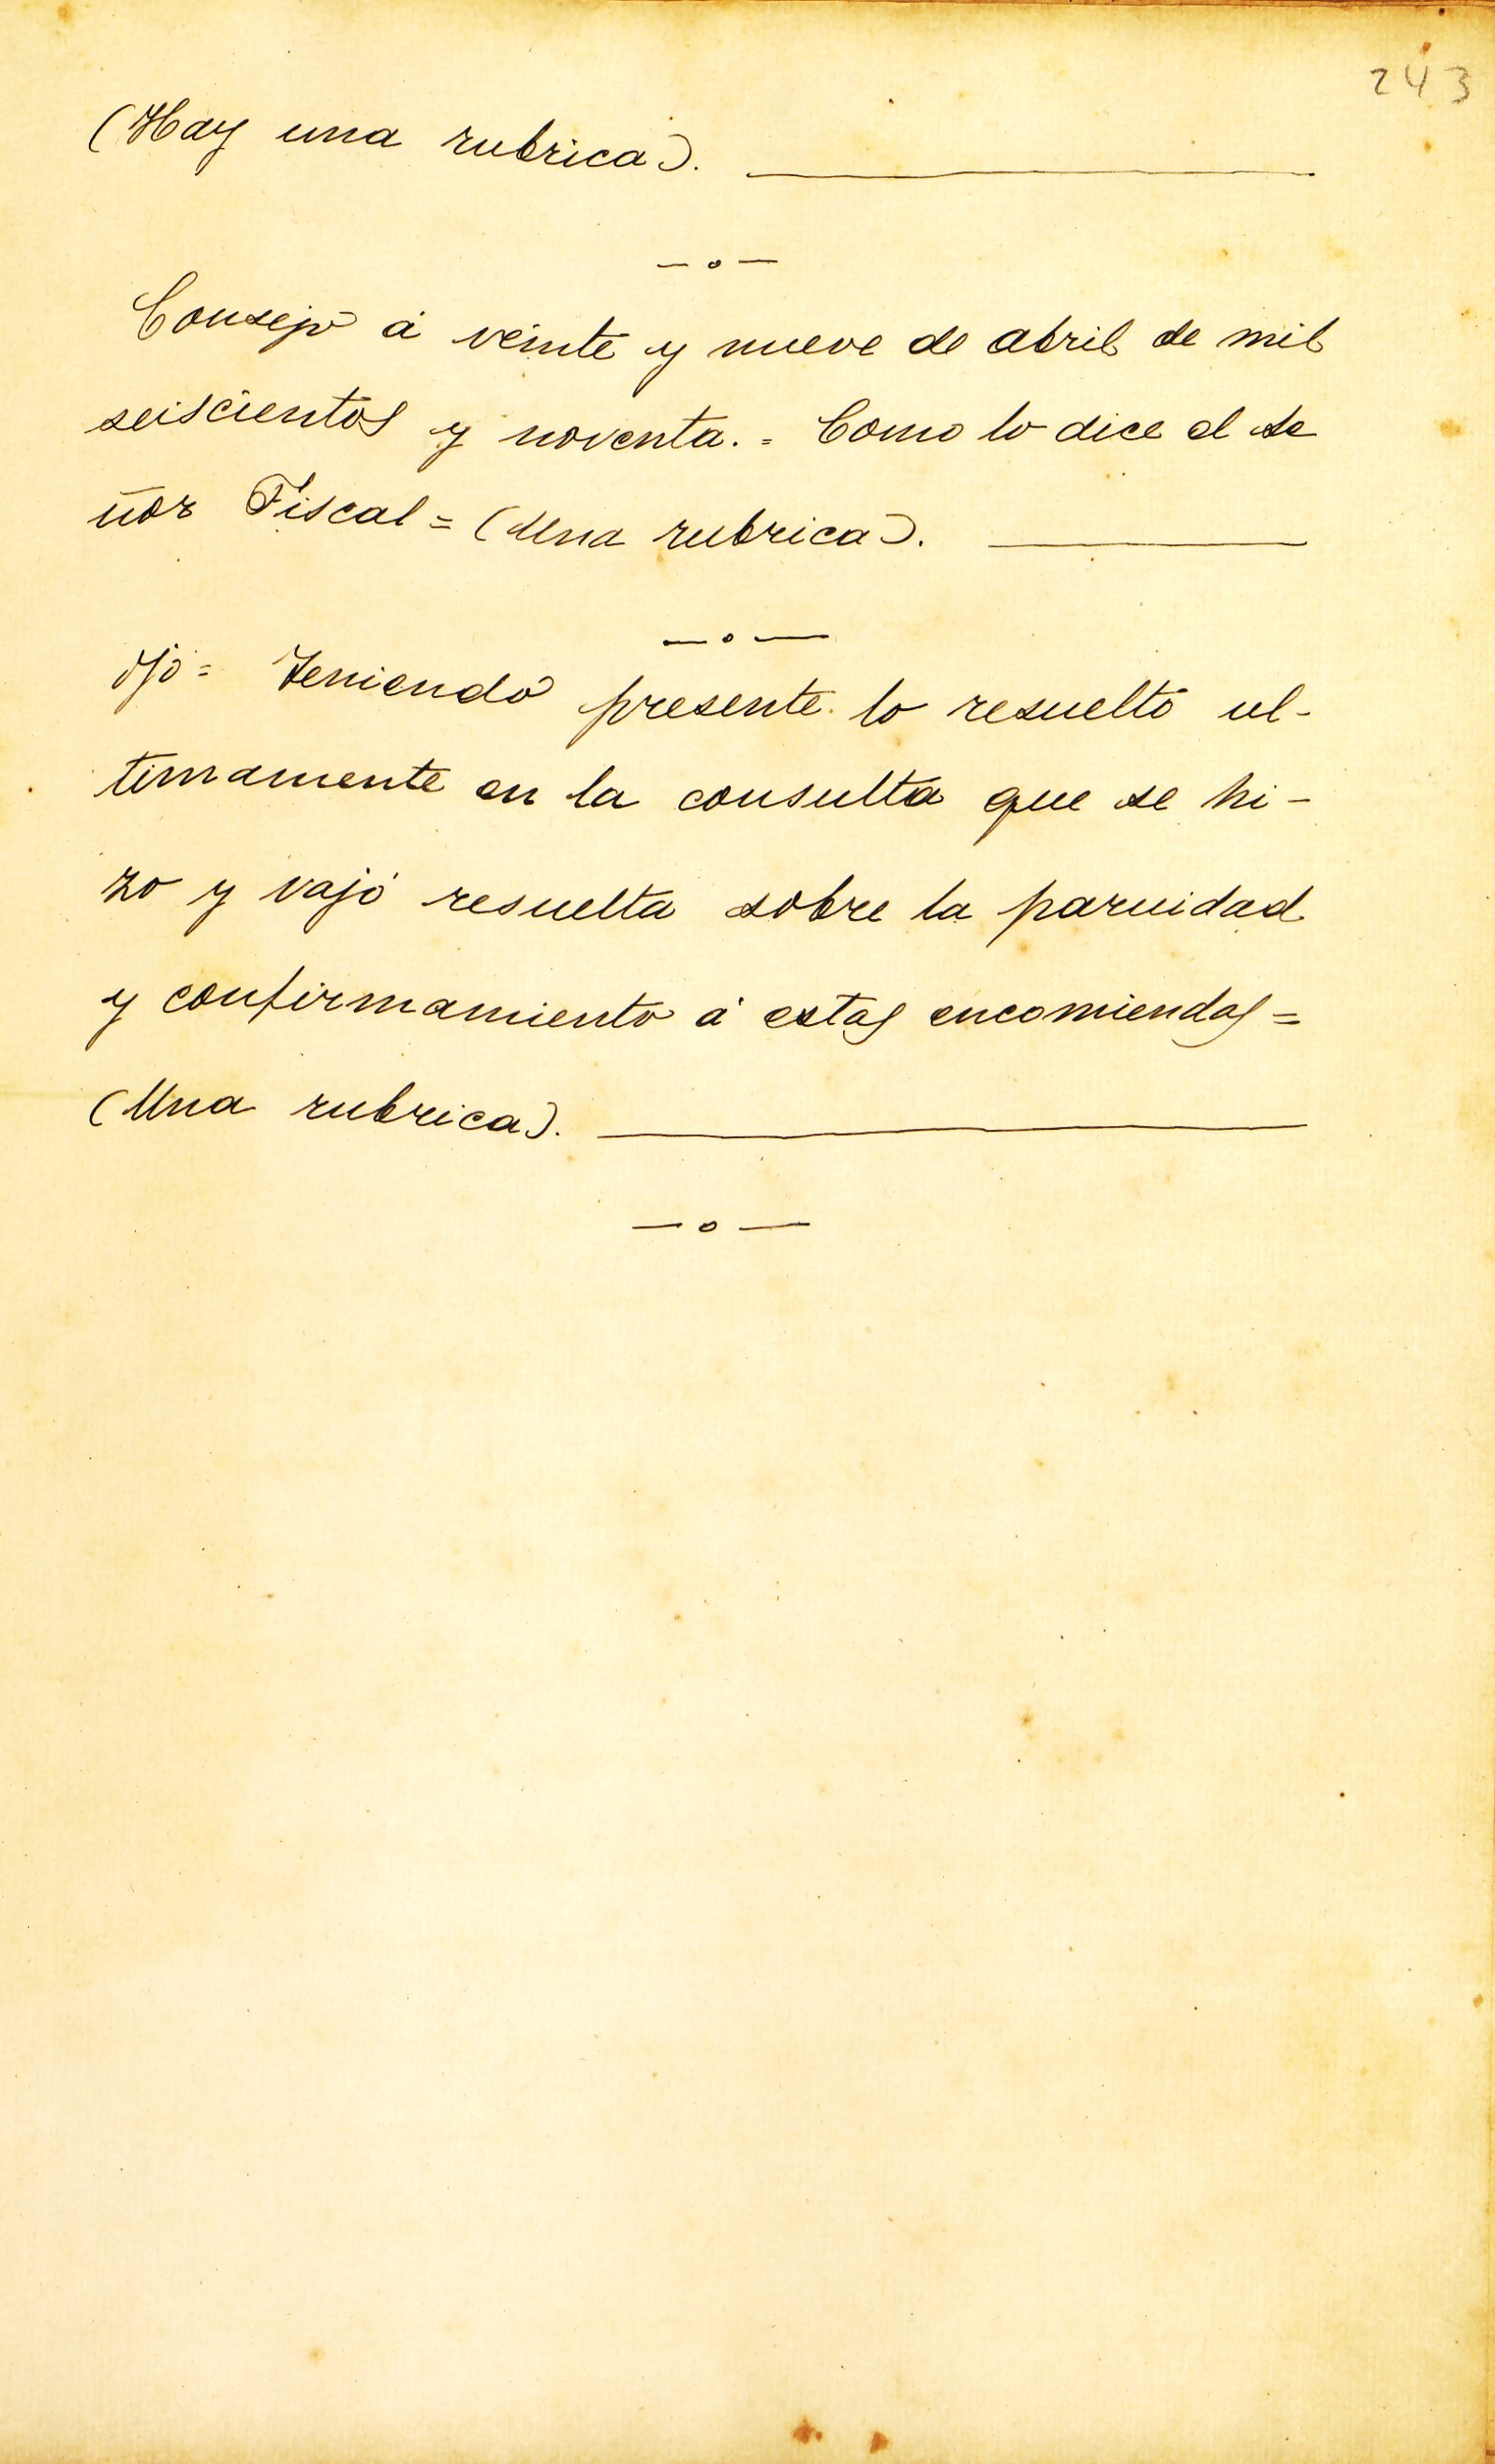 243
(Hay una rubrica). ———
— o —
Consejo á veinte y nueve de abril de mil
seiscientos y noventa. = Como lo dice el se
ñor Fiscal = (Una rubrica). ———
— o —
ojo = Teniendo presente lo resuelto ul-
timamente en la consulta que se hi-
zo y vajó resuelta sobre la paruidad
y confirmamiento á estas encomiendas =
(Una rubrica). ———
— o —